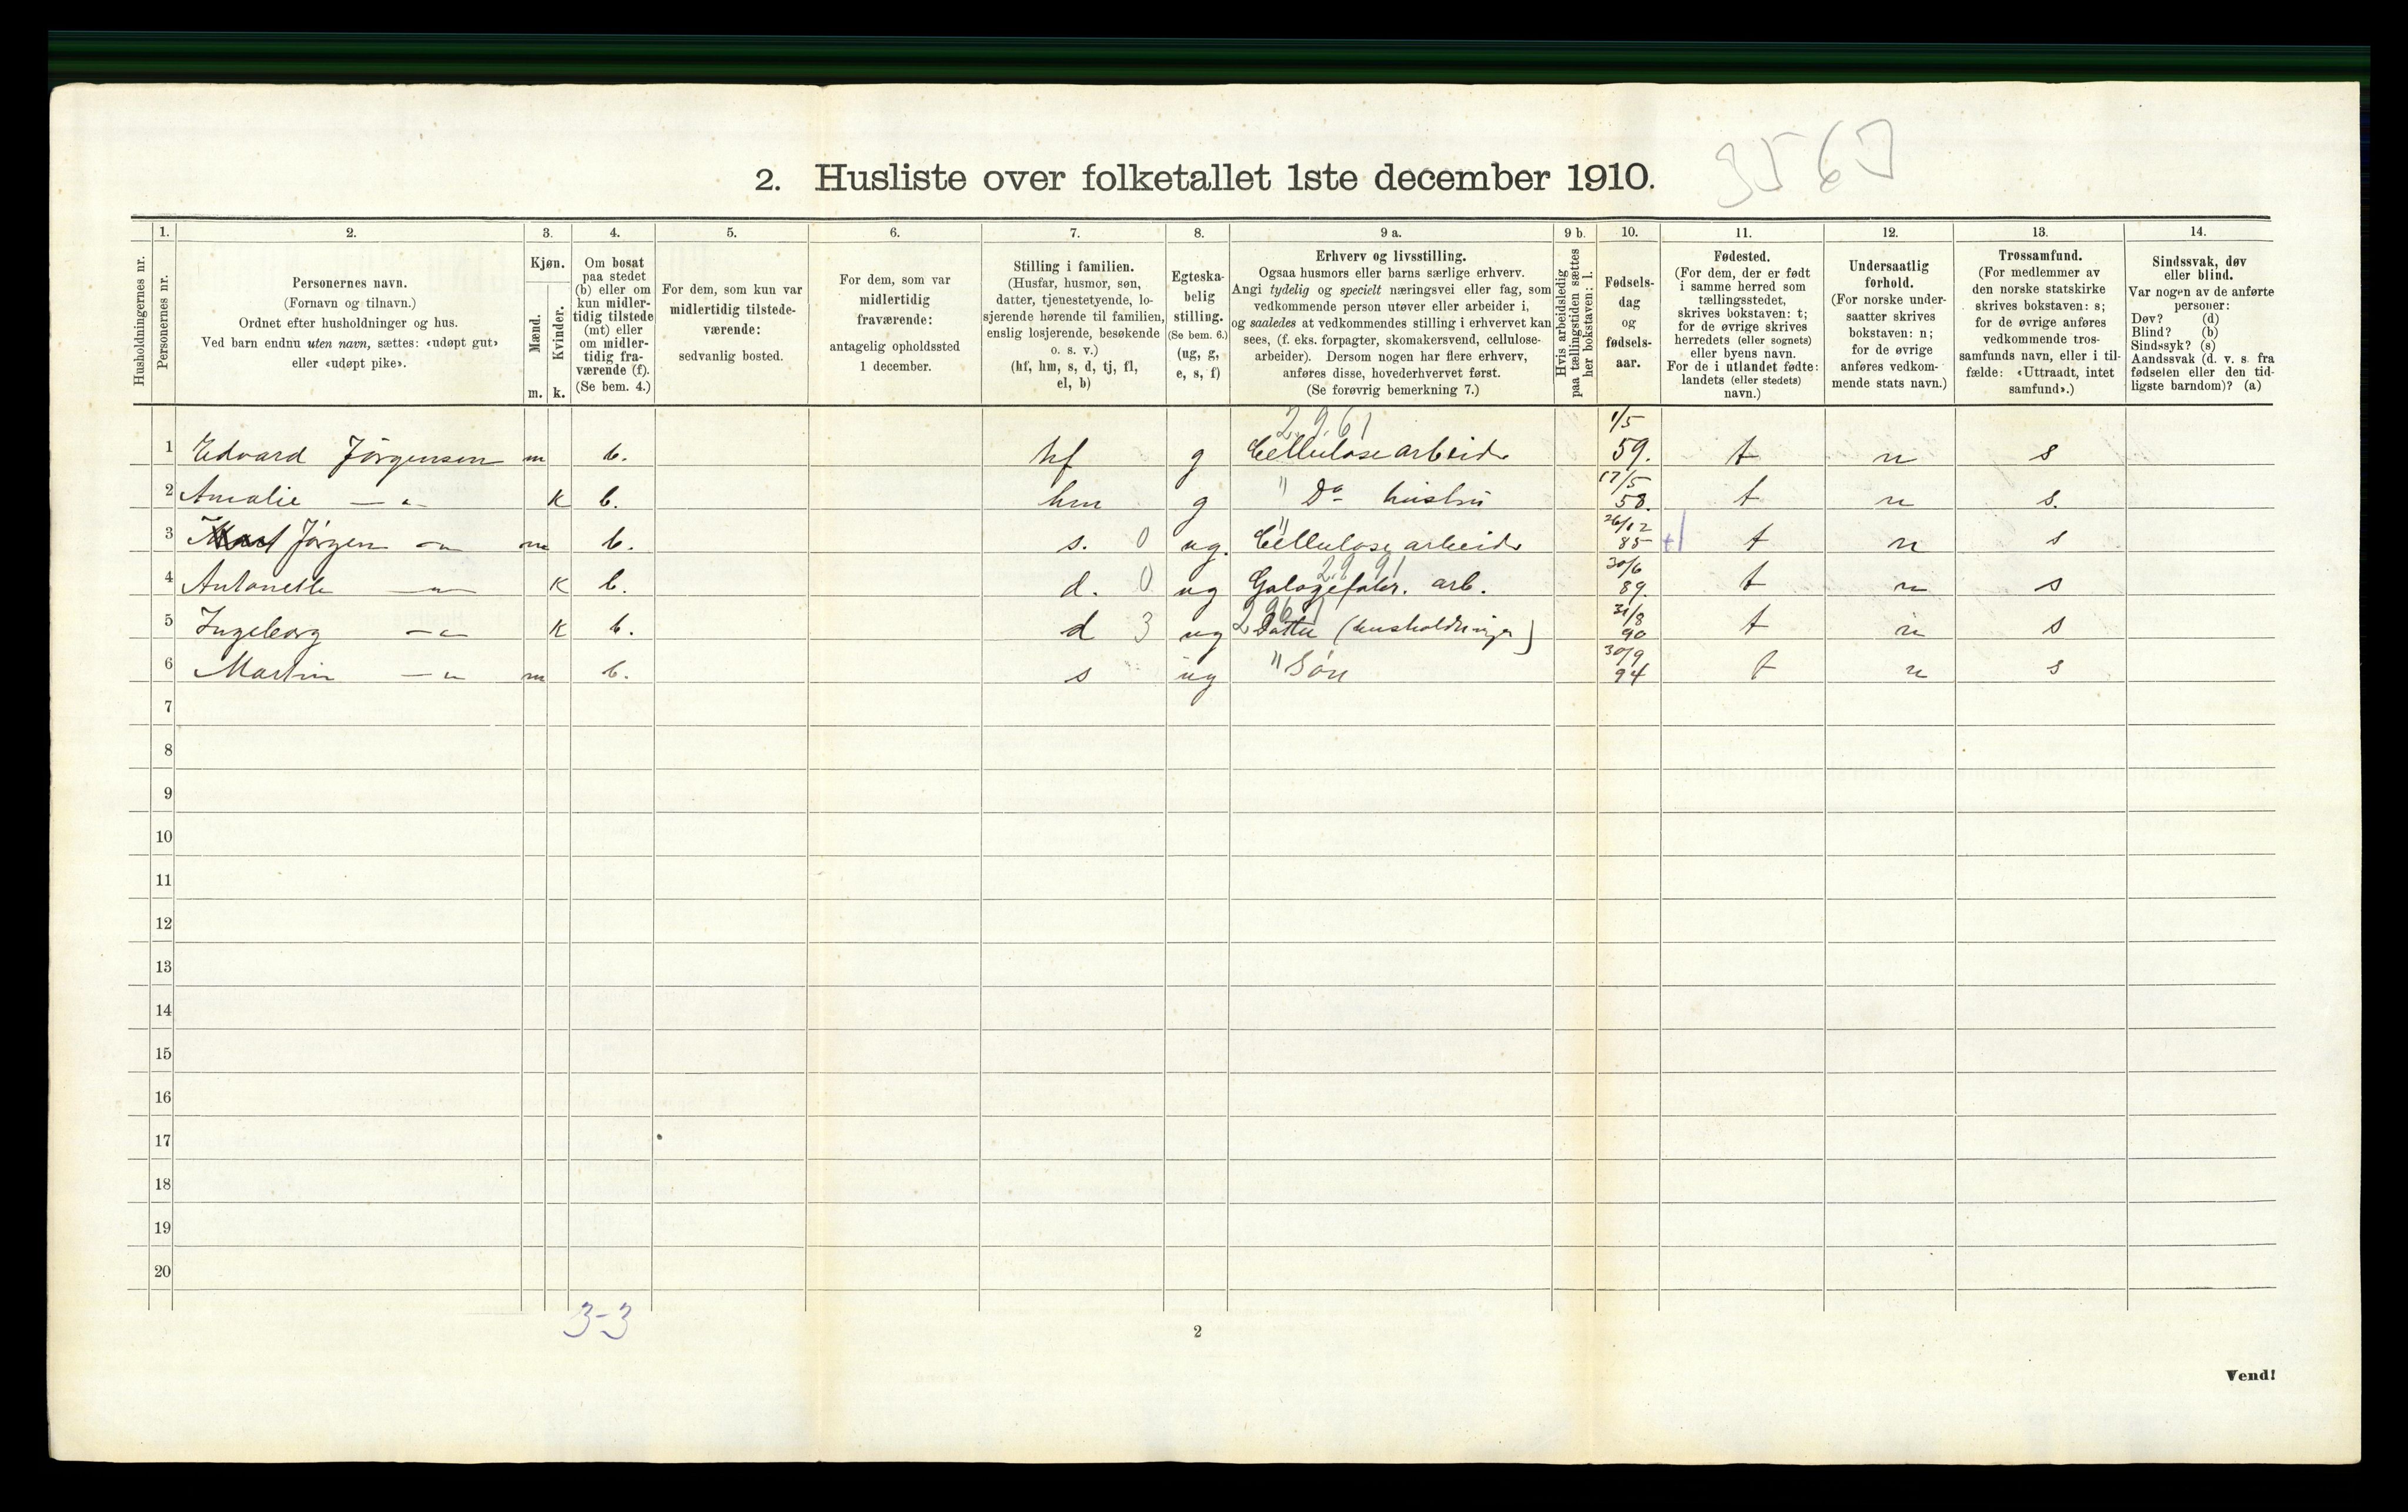 3567
2. Husliste over folketallet 1ste december 1910.
Husholdningernes nr.
1.
Personernes nr.
2.
Personernes navn.
(Fornavn og tilnavn.)
Ordnet efter husholdninger og hus.
Ved barn endnu uten navn, sættes: «udøpt gut»
eller «udøpt pike».
3.
Kjøn.
Mænd.
Kvinder.
m. k.
4.
Om bosat
paa stedet
(b) eller om
kun midler-
tidig tilstede
(mt) eller
om midler-
tidig fra-
værende (f).
(Se bem. 4.)
5.
For dem, som kun var
midlertidig tilstede-
værende:
sedvanlig bosted.
6.
For dem, som var
midlertidig
fraværende:
antagelig opholdssted
1 december.
7.
Stilling i familien.
(Husfar, husmor, søn,
datter, tjenestetyende, lo-
sjerende hørende til familien,
enslig losjerende, besøkende
o. s. v.)
(hf, hm, s, d, tj, fl,
el, b)
8.
Egteska-
belig
stilling.
(Se bem. 6.)
(ug, g,
e, s, f)
9 a.
Erhverv og livsstilling.
Ogsaa husmors eller barns særlige erhverv.
Angi tydelig og specielt næringsvei eller fag, som
vedkommende person utøver eller arbeider i,
og saaledes at vedkommendes stilling i erhvervet kan
sees, (f. eks. forpagter, skomakersvend, cellulose-
arbeider). Dersom nogen har flere erhverv,
anføres disse, hovederhvervet først.
(Se forøvrig bemerkning 7.)
9 b.
Hvis arbeidsledig
paa tællingstiden sættes
her bokstaven: l.
10.
Fødsels-
dag
og
fødsels-
aar.
11.
Fødested.
(For dem, der er født
i samme herred som
tællingsstedet,
skrives bokstaven: t;
for de øvrige skrives
herredets (eller sognets)
eller byens navn.
For de i utlandet fødte:
landets (eller stedets)
navn.)
12.
Undersaatlig
forhold.
(For norske under-
saatter skrives
bokstaven: n;
for de øvrige
anføres vedkom-
mende stats navn.)
13.
Trossamfund.
(For medlemmer av
den norske statskirke
skrives bokstaven: s;
for de øvrige anføres
vedkommende tros-
samfunds navn, eller i til-
fælde: «Uttraadt, intet
samfund».)
14.
Sindssvak, døv
eller blind.
Var nogen av de anførte
personer:
Døv? (d)
Blind? (b)
Sindssyk? (s)
Aandssvak (d. v. s. fra
fødselen eller den tid-
ligste barndom)? (a)
2961 1/5
1 Edvard Jörgensen m b. hf g Cellulosearbeid. 59. t n s
17/5
2 Amalie — " — k b. hm g " Do hustru 58. t n s.
26/12
3 Jörgen — " — m b. s. 0 ug. " Cellulosearbeid. 85 +1 t n s
2991 30/6
4 Antonette — " — k b. d. 0 ug Galogefabr. arb. 89. t n s
2961 31/8
5 Ingeborg — " — k b. d 3 ug Datter (husholdninger) 90 t n s
30/9
6 Martin — " — m b. s " ug " Sön 94 t n s
7
8
9
10
11
12
13
14
15
16
17
18
19
20
3-3
2
Vend!